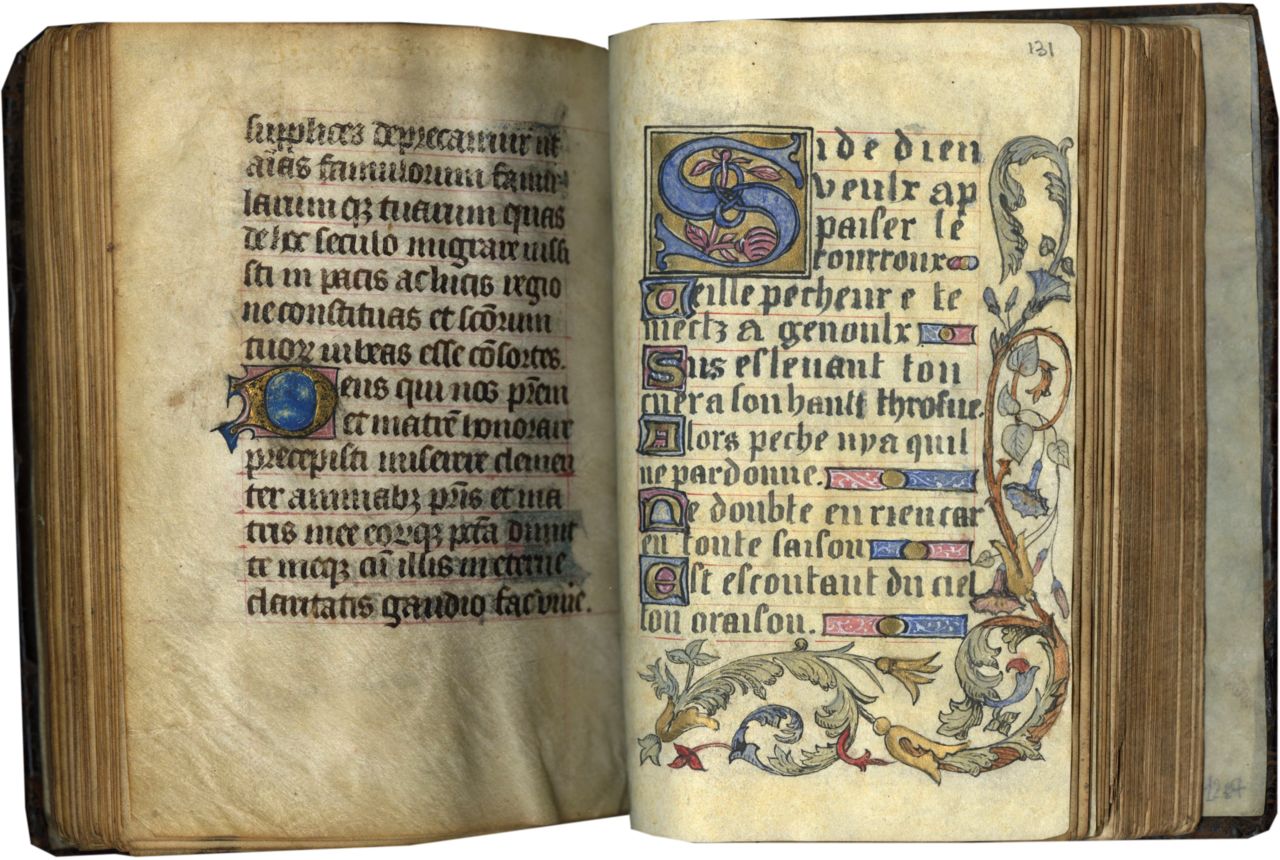 supplices deprecamur ut
aīas famulorum famu
larum qꝫ tuarum quas
de hoc seculo migrare iussi
sti in pacis ac lucis regio
ne constituas et scōrum
tuoꝝ iubeas esse cōsortes.
Deus qui nos prēm
et matrē honorare
precepisti miserere clemen
ter animabꝫ pr̄is et ma
tris mee eorūqꝫ pctā dimit
te meqꝫ cū illis in eterne
claritatis gaudio fac viue.
131
Si de dieu
veulx ap
paiser le
courroux
Veille pecheur e te
mectz a genoulx
Sus eslevant ton
cuer a son hault throsne.
Alors peche nya quil
ne pardonne.
Ne doubte en rien car
en toute saison
Est escoutant du ciel
ton oraison.